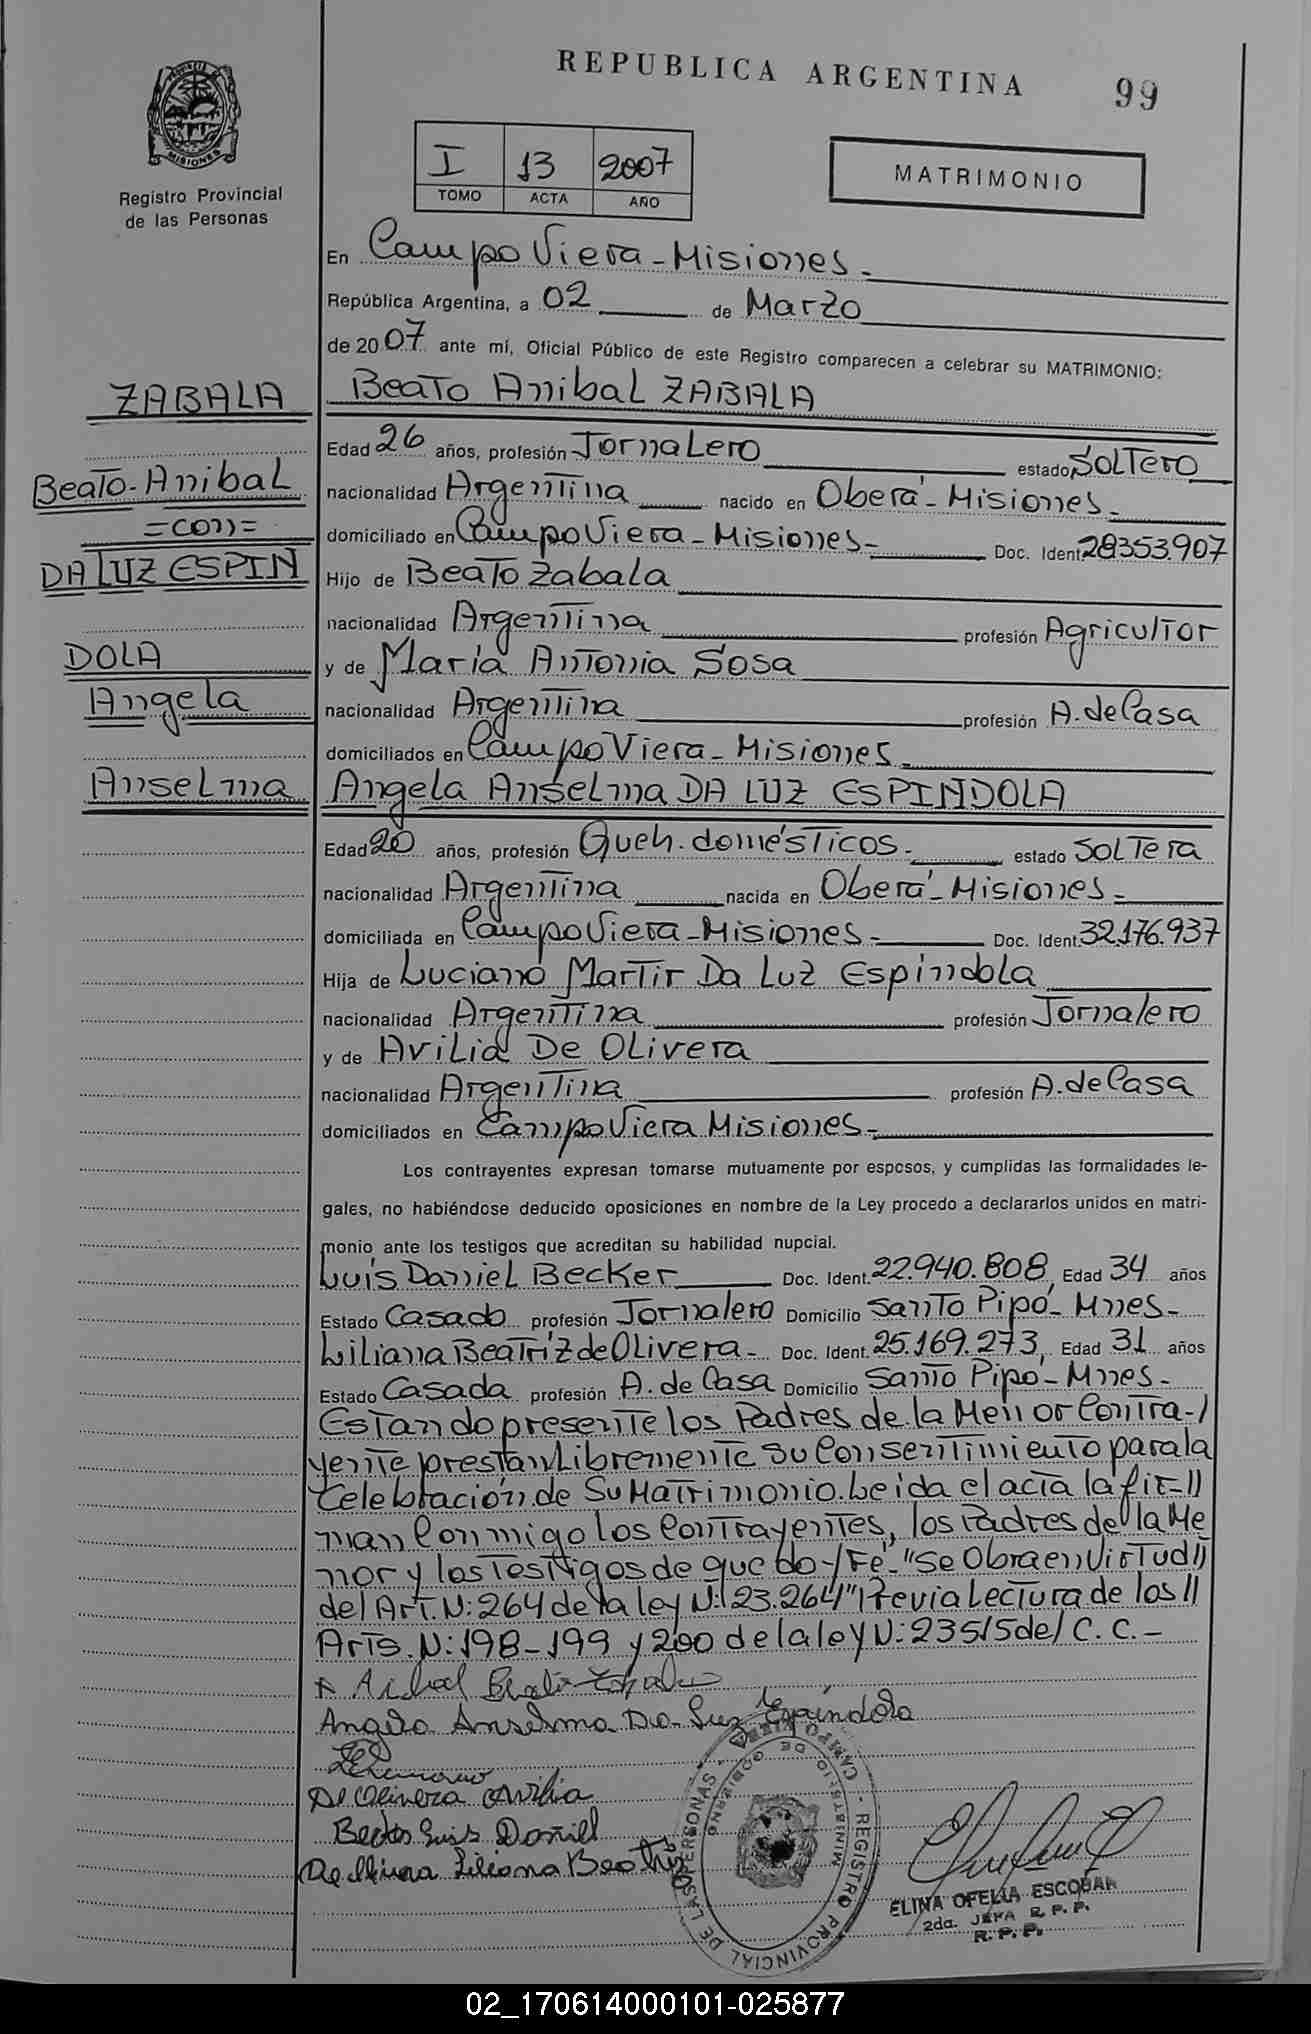 REPUBLICA ARGENTINA
99
MISIONES
Registro Provincial
de las Personas
I 13 2007
TOMO ACTA AÑO
MATRIMONIO
En Campo Viera - Misiones -
República Argentina, a 02 de Marzo
de 20 07 ante mí, Oficial Público de este Registro comparecen a celebrar su MATRIMONIO:
ZABALA
Beato-Anibal
=con=
DA LUZ ESPIN
DOLA
Angela
Anselma
Beato Anibal ZABALA
Edad 26 años, profesión Jornalero estado Soltero
nacionalidad Argentina nacido en Oberá - Misiones -
domiciliado en Campo Viera - Misiones - Doc. Ident. 28353.907
Hijo de Beato Zabala
nacionalidad Argentina profesión Agricultor
y de María Antonia Sosa
nacionalidad Argentina profesión A. de Casa
domiciliados en Campo Viera - Misiones -
Angela Anselma DA LUZ ESPINDOLA
Edad 20 años, profesión Queh. domésticos - estado Soltera
nacionalidad Argentina nacida en Oberá - Misiones -
domiciliada en Campo Viera - Misiones - Doc. Ident. 32.176.937
Hija de Luciano Martir Da Luz Espindola
nacionalidad Argentina profesión Jornalero
y de Avilia De Olivera
nacionalidad Argentina profesión A. de Casa
domiciliados en Campo Viera Misiones -
Los contrayentes expresan tomarse mutuamente por esposos, y cumplidas las formalidades le-
gales, no habiéndose deducido oposiciones en nombre de la Ley procedo a declararlos unidos en matri-
monio ante los testigos que acreditan su habilidad nupcial.
Luis Daniel Becker Doc. Ident. 22.940.808, Edad 34 años
Estado Casado profesión Jornalero Domicilio Santo Pipó - Mnes -
Liliana Beatriz de Olivera - Doc. Ident. 25.169.273, Edad 31 años
Estado Casada profesión A. de Casa Domicilio Santo Pipó - Mnes -
Estando presente los Padres de la Menor Contra-/
yente prestan Libremente su Consentimiento para la
Celebración de Su Matrimonio. Leida el acta la fir=//
man Conmigo los Contrayentes, los Padres de la Me
nor y los Testigos de que do-/Fé - "Se Obra en Virtud//
del Art. N: 264 de la ley N: 23.264" Previa Lectura de los //
Arts. N: 198 - 199 y 200 de la ley N: 23515 del C.C. -
Anibal Beato Zabala
Angela Anselma Da Luz Espíndola
De Olivera Avilia
Becker Luis Daniel
De Olivera Liliana Beatriz
REGISTRO PROVINCIAL DE LAS PERSONAS - CAMPO VIERA -
MINISTERIO DE GOBIERNO
ELINA OFELIA ESCOBAR
2da. JEFA R. P. P.
R. P. P.
02_170614000101-025877